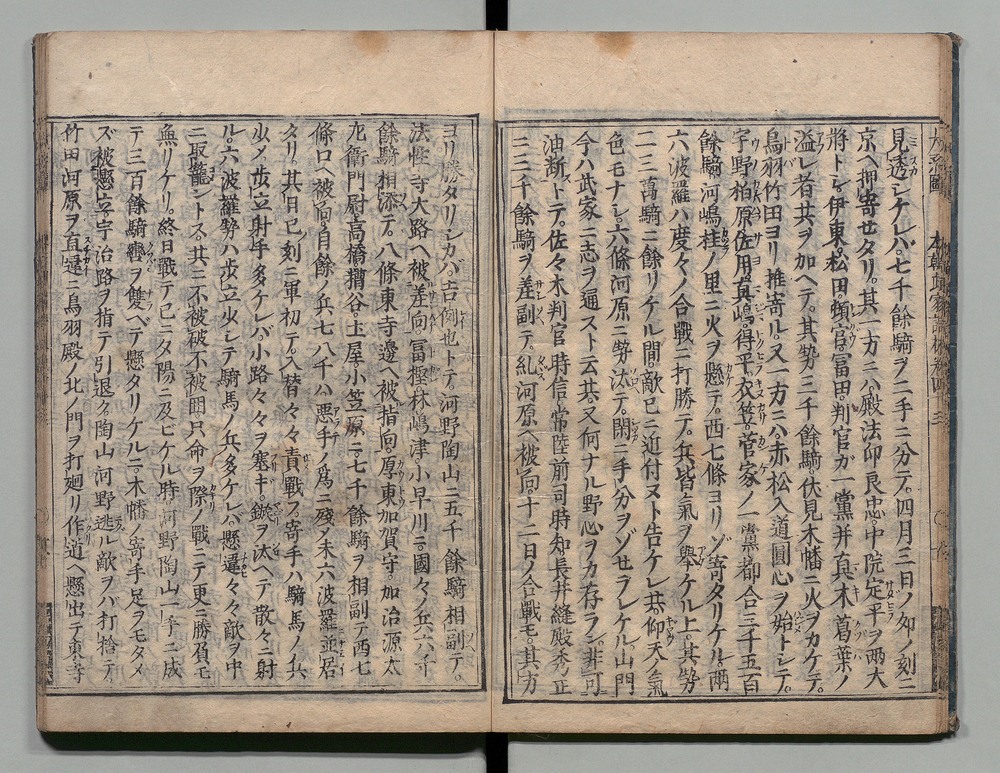 見透シケレバ七千餘騎ヲ二手ニ分テ四月三日ノ卯ノ刻ニ
京ヘ押寄セタリ其一方ニハ殿法印良忠中院定平ヲ兩大
將トシ伊東松田頓宮冨田判官ガ一黨并真木葛葉ノ
溢レ者共ヲ加ヘテ其勢三千餘騎伏見木幡ニ火ヲカケテ
鳥羽竹田ヨリ推寄ル又一方ニハ赤松入道圓心ヲ始トシテ
宇野柏原佐用真嶋得平衣笠菅家ノ一黨都合三千五百
餘騎河嶋桂ノ里ニ火ヲ懸テ西七條ヨリゾ寄タリケル兩
六波羅ハ度々ノ合戰ニ打勝テ兵皆氣ヲ擧ケル上其勢
二三萬騎ニ餘リケル間敵已ニ近付ヌト告ケレ共仰天ノ氣
色モナシ六條河原ニ勢汰テ閑ニ手分ヲゾセラレケル山門
今ハ武家ニ志ヲ通ストテ云共又何ナル野心ヲカ存ラン非可
油断トテ佐々木判官時信常陸前司時知長井縫殿秀正
ニ三千餘騎ヲ差副テ糺河原ヘ被向十二日ノ合戰モ其方
ヨリ勝タリシカバ吉例也トテ河野陶山ニ五千餘騎相副テ
法性寺大路ヘ被差向冨樫林嶋津小早川ニ國々ノ兵六千
餘騎相添テ八條東寺邊ヘ被指向厚東加賀守加治源太
左衞門尉高橋糟谷土屋小笠原ニ七千餘騎ヲ相副テ西七
條口ヘ被向自餘ノ兵七八千ハ悪手ノ爲ニ殘ノ末六波羅並居
タリ其日巳刻ニ軍初テ入替々々責戰フ寄手ハ騎馬ノ兵
少メ歩立射手多ケレバ小路々々ヲ塞ギ鏃ヲ汰ヘテ散々ニ射
ル六波羅勢ハ歩立少シテ騎馬ノ兵多ケレバ懸違々々敵ヲ中
ニ取籠ントス其ニ不被被不被囲只命ヲ際ノ戰ニテ更ニ勝負モ
無リケリ終日戰テ已ニタ陽ニ及ビケル時河野陶山一手ニ成
テ三百餘騎轡ヲ雙ベテ懸タリケルニ木幡ノ寄手足ヲモタメ
ズ被懸立宇治路ヲ指テ引退ク陶山河野逃ル敵ヲバ打捨テ
竹田河原ヲ直違ニ鳥羽殿ノ北ノ門ヲ打廻リ作道ヘ懸出テ東寺